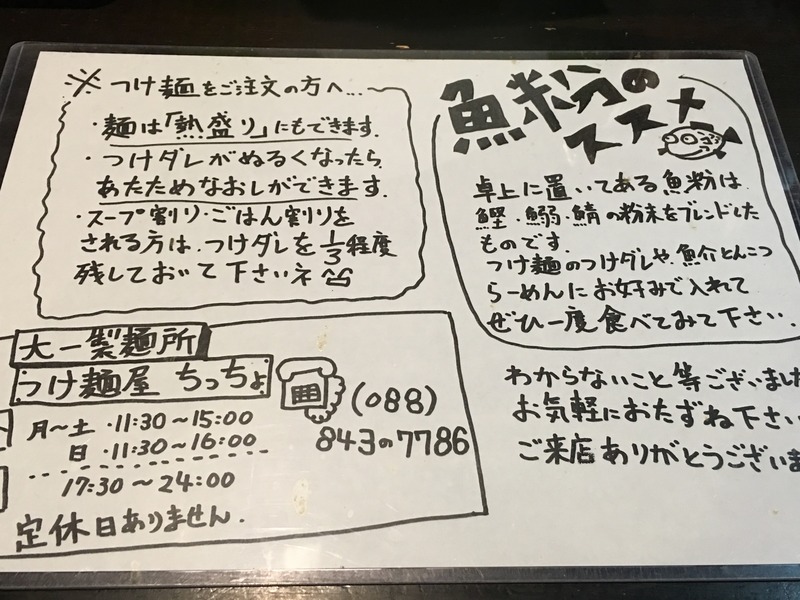 ※つけ麺をご注文の方へ…
・麺は「熱盛り」にもできます.
・つけダレがぬるくなったら
あたためなおしができます.
・スープ割り・ごはん割りを
される方は、つけダレを1/3程度
残しておいて下さいネ
魚粉の
ススメ
卓上に置いてある魚粉は、
鰹・鰯・鯖の粉末をブレンドした
ものです.
つけ麺のつけダレや、魚介とんこつ
らーめんにお好みで入れて
ぜひ一度食べてみて下さい.
わからないこと等ございまし
お気軽におたずね下さい
ご来店ありがとうございま
大一製麺所
つけ麺屋 ちっちょ
月〜土・11:30〜15:00
日・11:30〜16:00
17:30〜24:00
定休日ありません.
(088)
843の7786